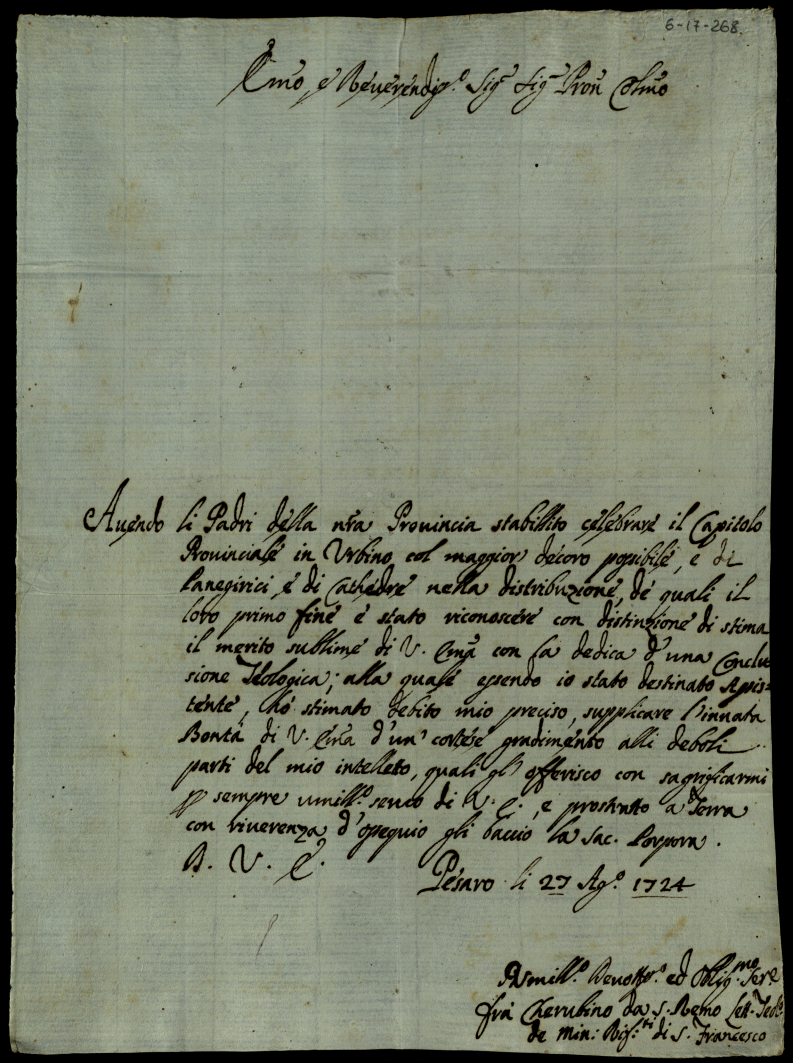 6-17-268.
Emo, e Reuerendis.o Sig.r Sig.r Pron Colmo
Auendo li Padri della nra Prouincia stabillito celebrare il Capitolo
Prouinciale in Vrbino col maggior decoro possibile, e di
Panegirici e di Cathedre nella distribuzione, de quali il
loro primo fine e stato riconoscere con distinzione di stima
il merito sublime di V. Emã con la dedica d'una Conclu
sione Teologica; alla quale essendo io stato destinato Assis=
tente, hò stimato debito mio preciso, supplicare l'innata
Bontà di V. Emã d'un' cortese gradimento alli deboli
parti del mio intelleto, quali gl' offerisco con sagrificarmi
p sempre umill.o seruo di V. E., e prostrato a Terra
con riuerenza d'ossequio gli baccio la Sac. Porpora.
D. V. E.
Pesaro li 27 Ag.o 1724
Vmill.o Deuotis.o ed Oblig.mo Ser.e
frà Cherubino da S. Remo Lett. Teol.
de Min: Rif.ti di S. Francesco